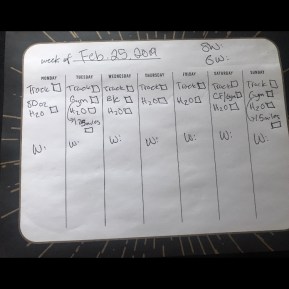 week of Feb 25 2019
SW:
GW:
MONDAY TUESDAY WEDNESDAY THURSDAY FRIDAY SATURDAY SUNDAY
Track Track Track Track Track Track Track
80oz Gym H2O H2O CF/Gym Gym
H2O H2O H2O H2O H2O
W: W: W: W: W: W: W: